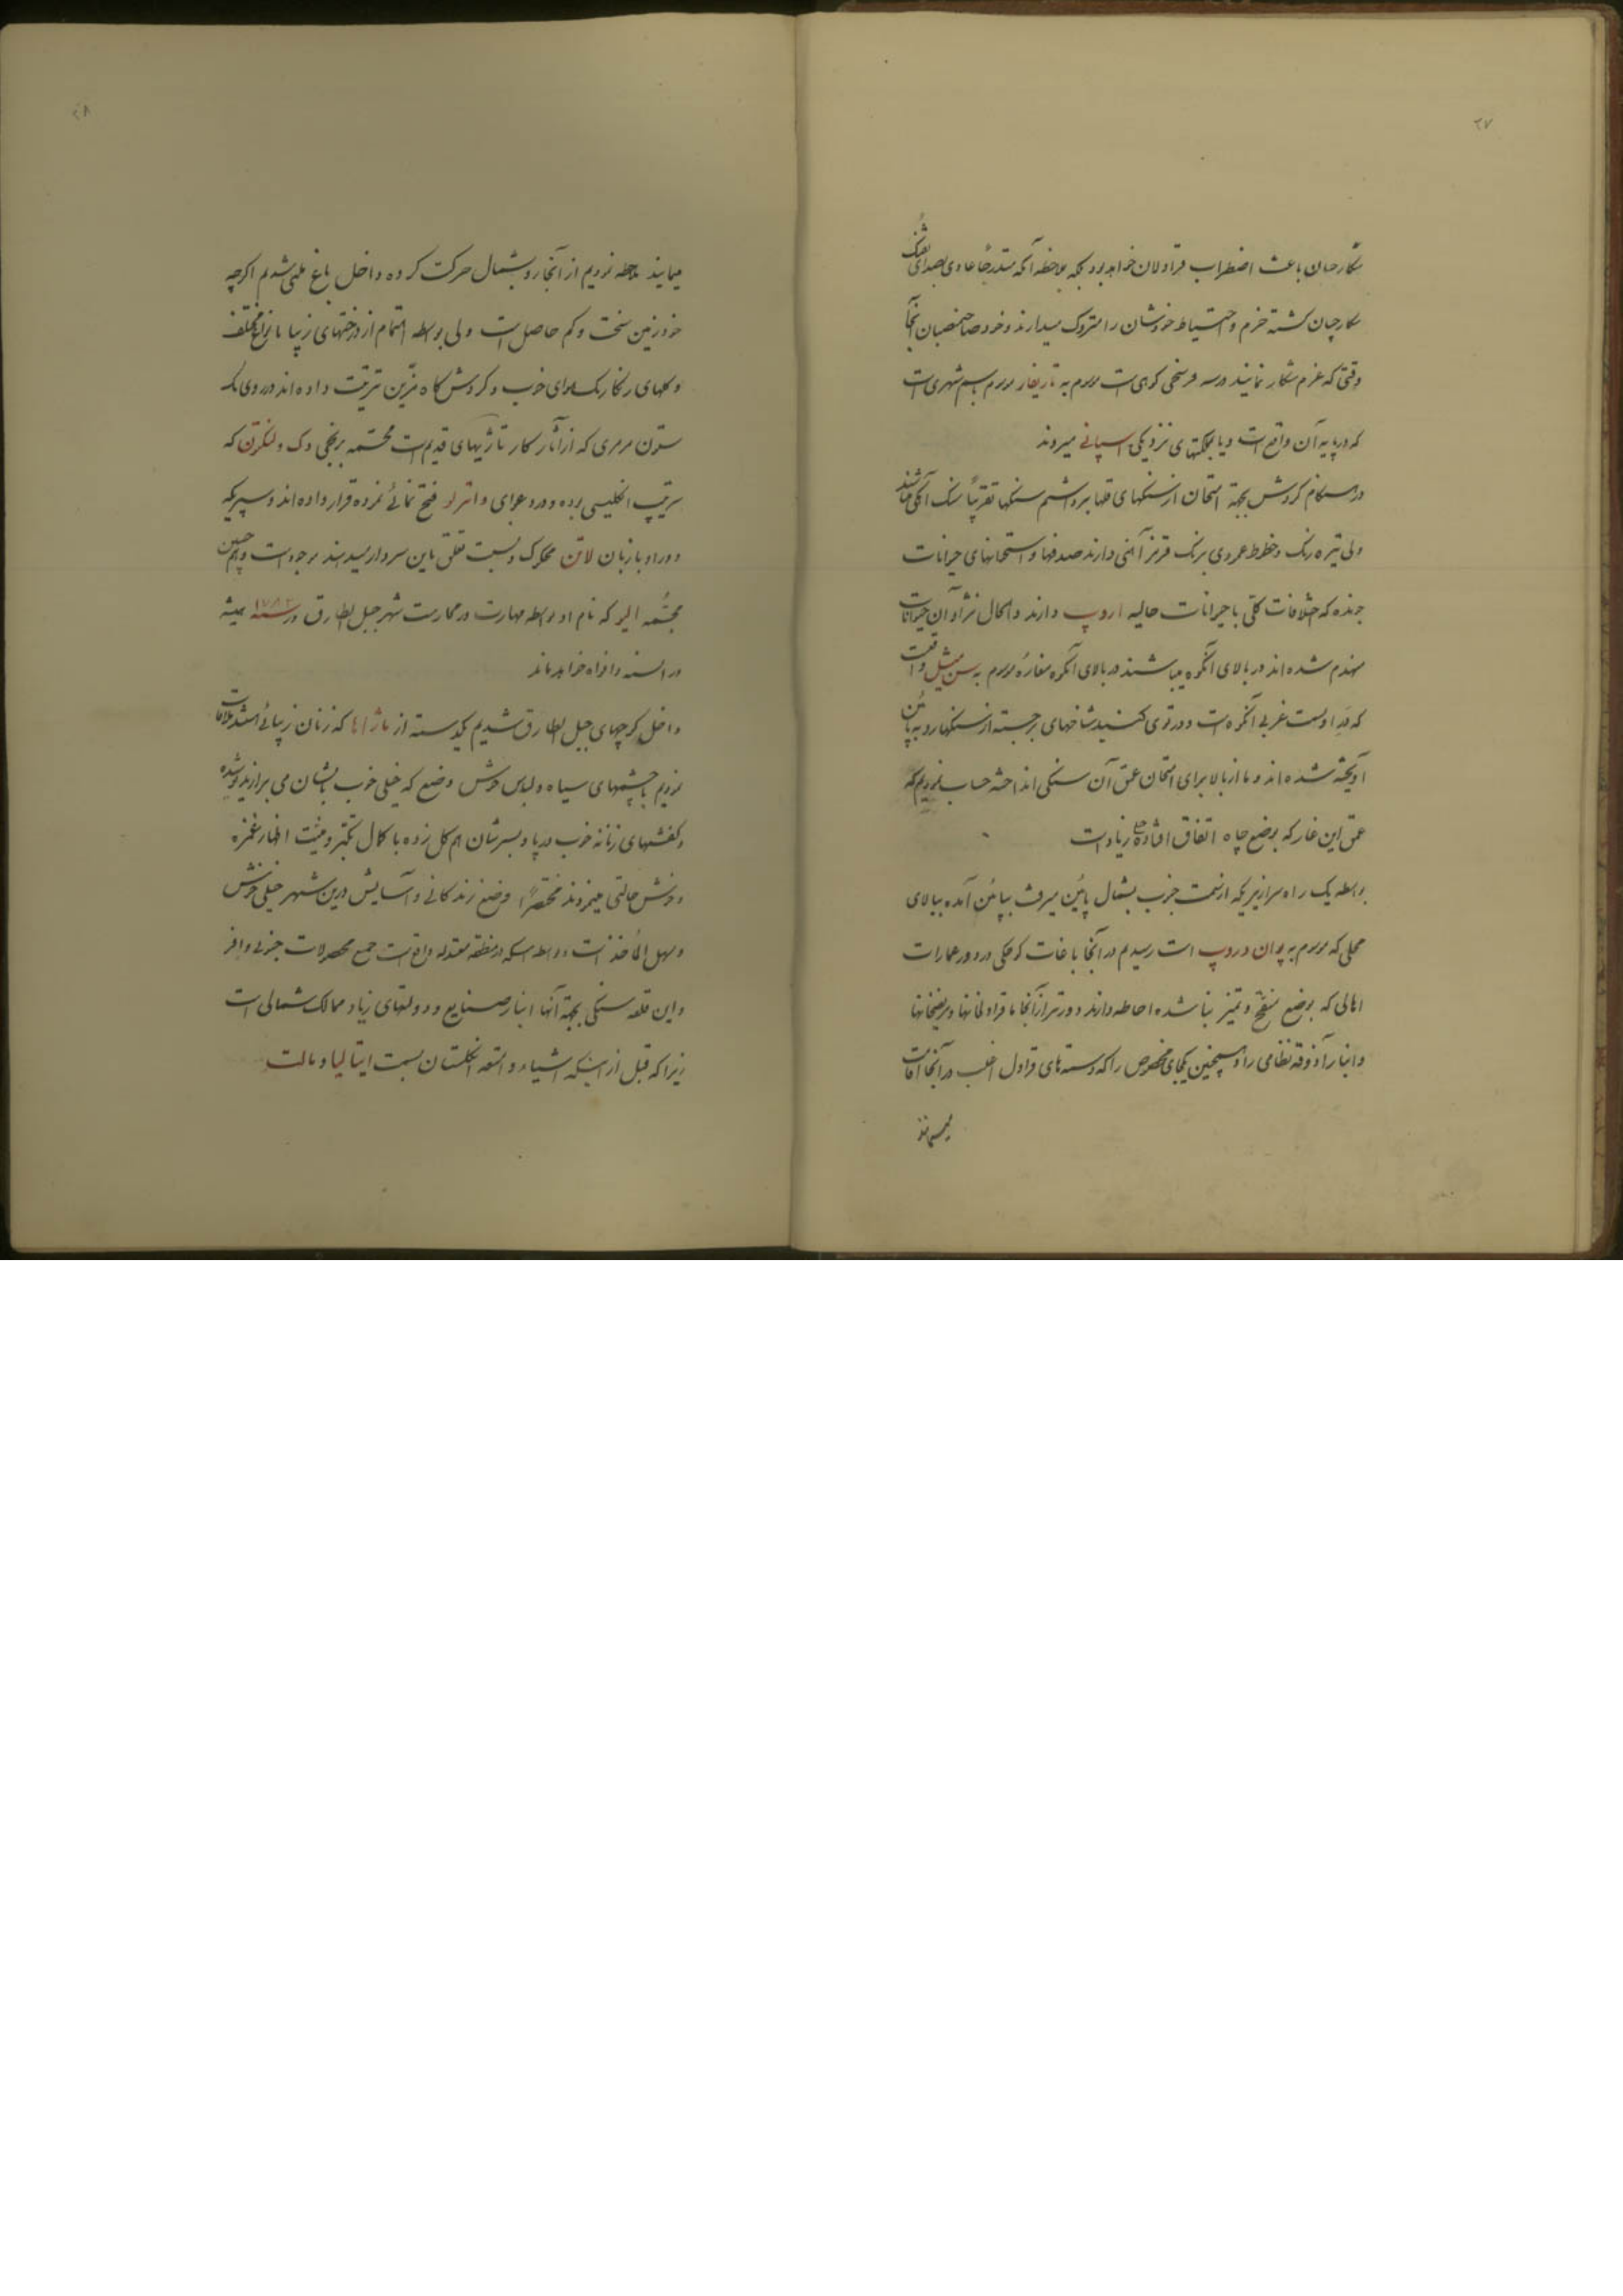 ۲۷
شکارچیان باعث اضطراب قراولان خواهد بود بلکه بملاحظه آنکه متدرجاً عادی بصدای تفنگ
شکارچیان گشته حزم و احتیاط خودشان را متروک میدارند و خود صاحبمنصبان آنجا
وقتی که عزم شکار نمایند در سه فرسخی کوهی است موسوم به تاریفار موسوم باسم شهری است
که در پایه آن واقع است و یا بجنگلهای نزدیکی اسپانی میروند
در هنگام گردش بجهة امتحان از سنگهای قلها برداشتم سنگها تقریباً سنگ آهکی میباشند
ولی تیره رنگ و خطوط عمودی برنگ قرمز آهنی دارند صدفها و استخوانهای حیوانات
جونده که اختلافات کلی با حیوانات حالیه اروپ دارند و الحال نژاد آن حیوانات
منهدم شده‌اند در بالای آنکوه میباشند در بالای آنکوه مغاره موسوم به سن میشل واقعست
که در او بسمت غربی آنکوه است و در توی گنبد شاخهای برجسته از سنگها رو به پائین
آویخته شده‌اند و ما از بالا برای امتحان عمق آن سنگی انداخته حساب نمودیم که
عمق این غار که بوضع چاه اتفاق افتاده خیلی زیاد است
بواسطه یک راه سرازیر که از سمت جنوب بشمال پائین میرفت بپائین آمده ببالای
محلی که موسوم به پوان دروپ است رسیدیم در آنجا باغات کوچکی در دور عمارات
اهالی که بوضع منقح و تمیز بنا شده احاطه دارند دورتر از آنجا ما قراولخانها و مریضخانها
و انبار آذوقه نظامی را و همچنین یکجای مخصوص را که دسته‌های قراول اغلب در آنجا اقامت
مینمایند
۲۸
مینمایند ملاحظه نمودیم از آنجا رو بشمال حرکت کرده داخل باغ ملی شدیم اگرچه
خود زمین سخت و کم حاصل است ولی بواسطه اهتمام از درختهای زیبا بانواع مختلف
و گلهای رنگارنگ هوای خوب و گردش گاه مزین ترتیب داده‌اند در روی یک
ستون مرمری که از آثار کار تاژیهای قدیم است مجسمه برنجی دک ولنگتن که
سرتیپ انگلیسی بوده و در دعوای واترلو فتح نمائی نموده قرار داده‌اند و سپریکه
در او بازبان لاتن محکوک و نسبت تعلق باین سردار میدهند موجود است و هم چنین
مجسمه الیو که نام او بواسطه مهارت در محاربت شهر جبل الطارق در سنه ۱۷۸۲ همیشه
در السنه و افواه خواهد ماند
داخل کوچهای جبل الطارق شدیم یکدسته از ماژاها که زنان زیبائی هستند ملاقات
نمودیم با چشمهای سیاه و لباس خوش وضع که خیلی خوب بایشان می برازید پوشیده
و کفشهای زنانه خوب در پا و بسرشان هم گل زده با کمال تکبر و منیت اظهار غمزه
و خوش حالتی مینمودند مختصراً وضع زندگانی و آسایش درین شهر خیلی خوش
و سهل المأخذ است بواسطه اینکه در منطقه معتدله واقع است جمیع محصولات جنوبی وافر
و این قلعه سنگی بجهة آنها انبار صنایع و دولتهای زیاد ممالک شمالی است
زیرا که قبل از اینکه اشیاء و امتعه انگلستان بسمت ایتالیا و مالت